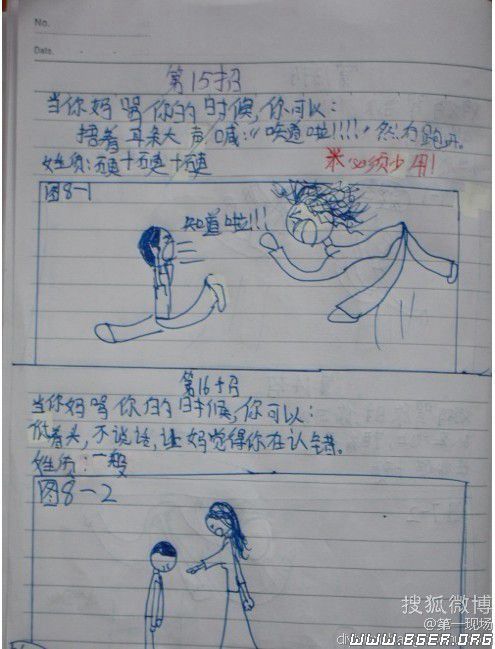 No.
Date.
第15招
当你妈骂你的时候,你可以:
捂着耳朵大声喊:“知道啦!!!!”然后跑开。
姓质:
※必须少用!
图8-1
知道啦!!!
第16招
当你妈骂你的时候,你可以:
低着头,不说话,让妈觉得你在认错。
姓质:一般
图8-2
搜狐微博
@第一现场
WWW.BGER.ORG